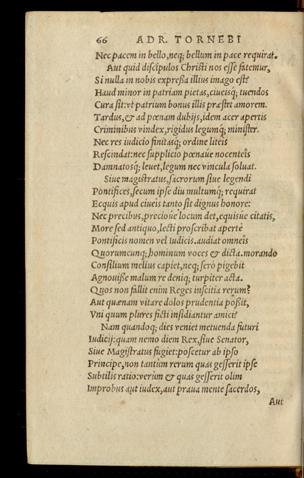 66 ADR. TORNEBI
Nec pacem in bello, neq; bellum in pace requirat.
Aut quid discipulos Christi nos esse fatemur,
Si nulla in nobis expressa illius imago est?
Haud minor in patriam pietas, ciuesq; tuendos
Cura sit: vt patrium bonus illis præstet amorem.
Tardus, & ad pœnam dubijs, idem acer apertis
Criminibus vindex, rigidus legumq; minister.
Nec res iudicio finitasq; ordine liteis
Rescindat: nec supplicio pœnáue nocenteis
Damnatosq; leuet, legum nec vincula soluat.
Siue magistratus, sacrorum siue legendi
Pontifices, secum ipse diu multumq; requirat
Ecquis apud ciueis tanto sit dignus honore:
Nec precibus, precióue locum det, equisue citatis,
More sed antiquo, lecti proscribat apertè
Pontificis nomen vel iudicis. audiat omneis
Quorumcunq; hominum voces & dicta. morando
Consilium melius capiet, neq; serò pigebit
Agnouisse malum re deniq; turpiter acta.
Quot non fallit enim Reges inscitia rerum?
Aut quænam vitare dolos prudentia possit,
Vni quum plures ficti insidiantur amici?
Nam quandoq; dies veniet metuenda futuri
Iudicij: quam nemo diem Rex, siue Senator,
Siue Magistratus fugiet: poscetur ab ipso
Principe, non tantùm rerum quas gesserit ipse
Subtilis ratio: verùm & quas gesserit olim
Improbus aut iudex, aut praua mente sacerdos,
Aut